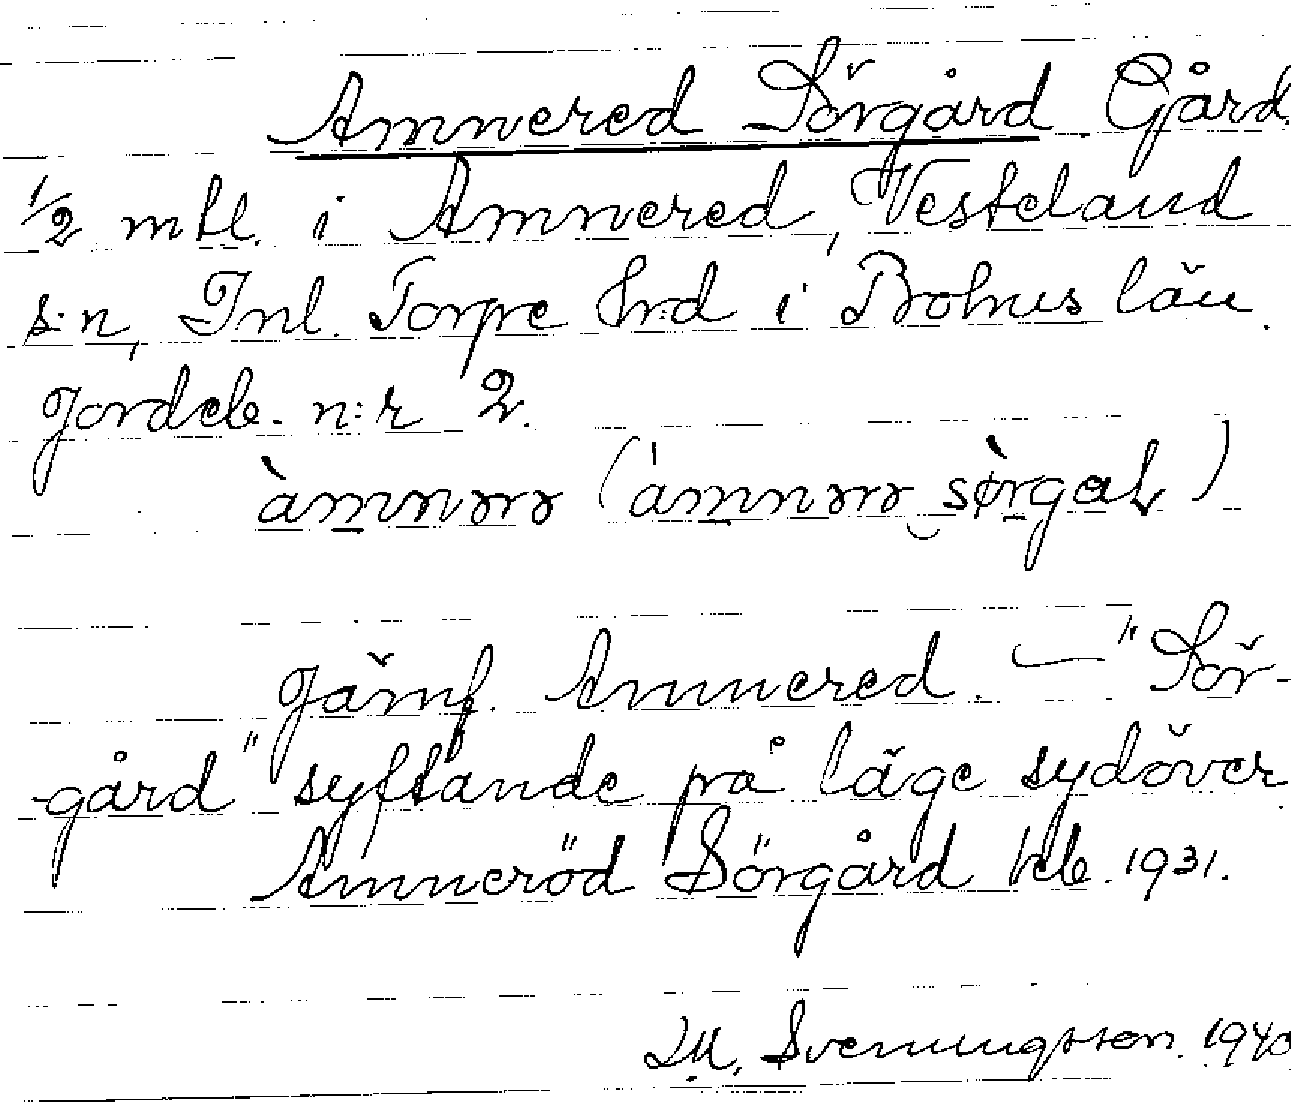 Amnered Sörgård Gård.
1/2 mtl. i Amnered, Vesteland
s:n, Inl. Torpe hrd i Bohus län.
Jordeb. n:r 2.
Jämf. Amnered. — "Sör-
gård" syftande på läge sydöver.
Amneröd Sörgård kb. 1931.
Sveningsson. 1940